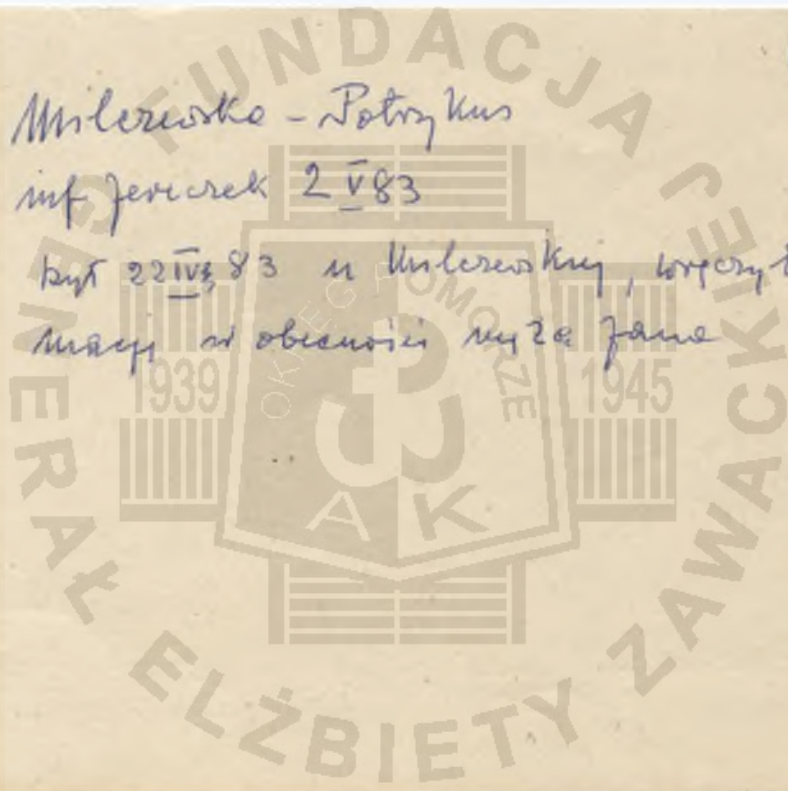 Milczewska - Potrykus
inf. Jereczek 2 V 83
był 22 IV 83 u Milczewskiej, wręczył
macji w obecności męża Jana
FUNDACJA GENERAŁ ELŻBIETY ZAWACKIEJ
OKRĘG POMORZE
1939
1945
AK